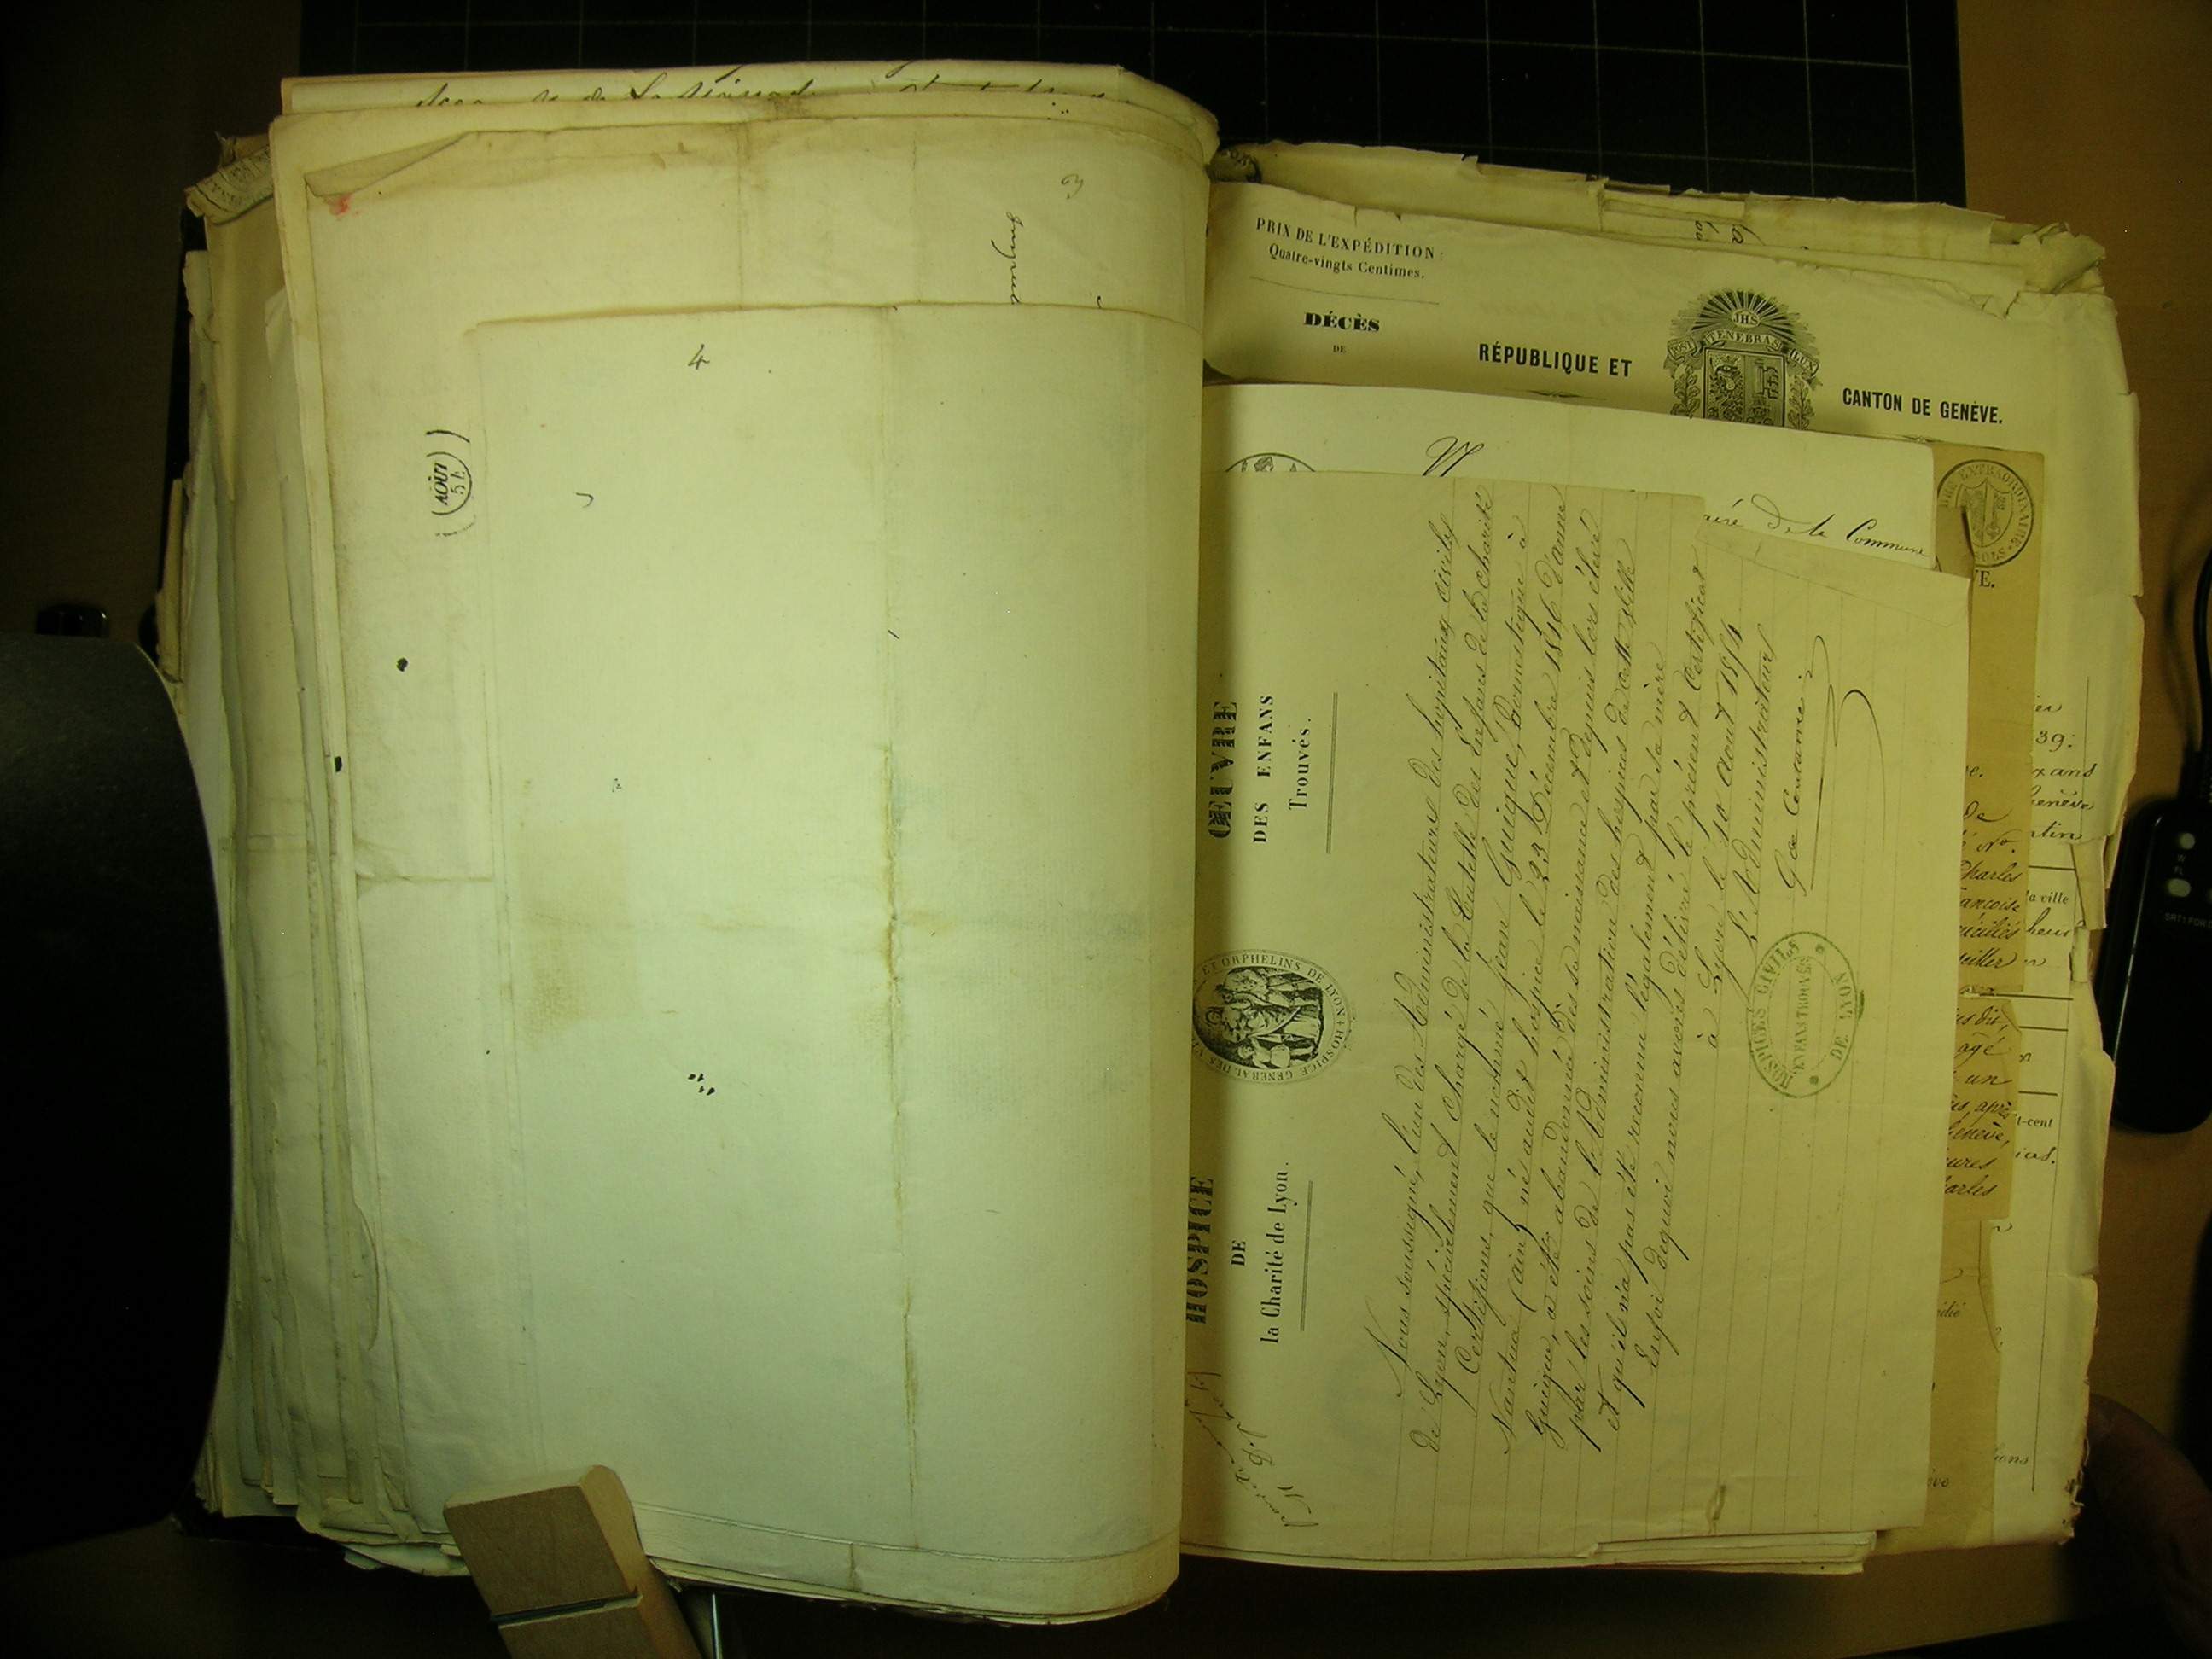 4
3
AOÛT
54
PRIX DE L'EXPÉDITION :
Quatre-vingts Centimes.
DÉCÈS
DE
RÉPUBLIQUE ET
CANTON DE GENÈVE.
POST TENEBRAS LUX
JHS
de la Commune
HOSPICE
DE
la Charité de Lyon.
ET ORPHELINS DE LYON * HOSPICE GENERAL DES
ŒUVRE
DES ENFANS
Trouvés.
Nous soussigné, l'un des Administrateurs des hopitaux civils
de Lyon, spécialement Chargé de la tutelle des Enfans de la Charité
Certifions, que le nommé Jean Guigue, Domestique à
Nantua (ain) né audit hospice le 23 Décembre 1816 d'anne
Guigue, a été abandonné dès sa naissance et depuis lors élevé
par les soins de l'Administration des hospices de cette ville
et qu'il n'a pas été reconnu légalement par sa mère
Enfoi dequoi nous avons délivré le présent Certificat
à Lyon le 10 aout 1854
L'Administrateur
HOSPICES CIVILS
ENFANS TROUVÉS
DE LYON
VE.
39:
de
Charles
ançoise
a ville
heur
agé
un
t-cent
Genève,